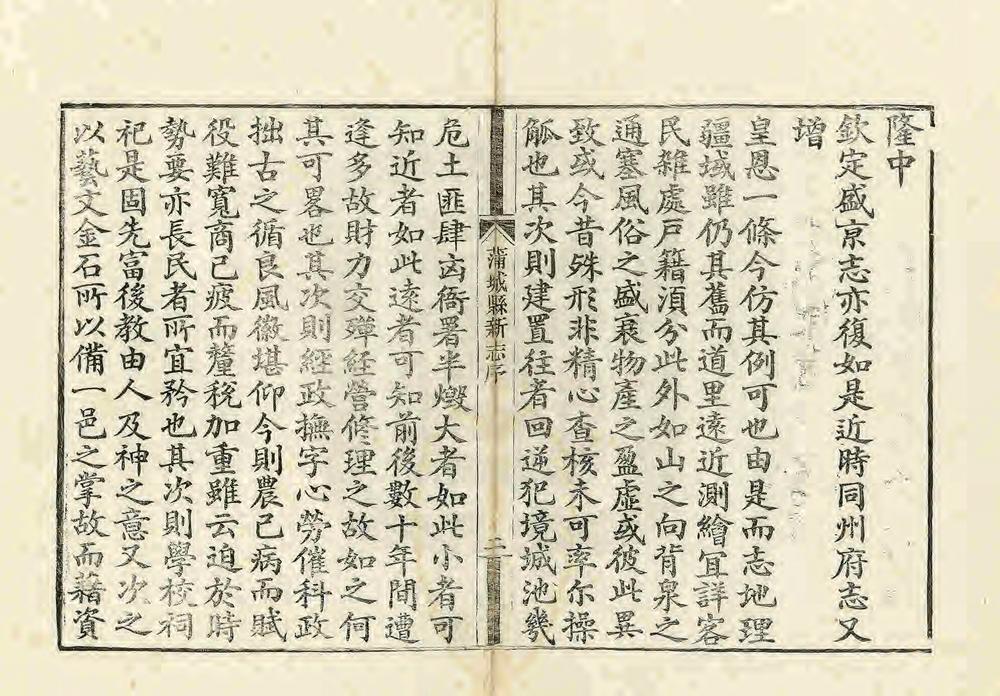 隆中
欽定盛京志亦復如是近時同州府志又
增
皇恩一條今仿其例可也由是而志地理
疆域雖仍其舊而道里遠近測繪宜詳客
民雜處戶籍湏分此外如山之向背泉之
通塞風俗之盛衰物產之盈虛或彼此異
致或今昔殊形非精心查核未可率尔操
觚也其次則建置往者回逆犯境城池幾
蒲城縣新志序
二
危土匪肆凶衙署半燬大者如此小者可
知近者如此遠者可知前後數十年間遭
逢多故財力交殫經營修理之故如之何
其可畧也其次則經政撫字心勞催科政
拙古之循良風徽堪仰今則農已病而賦
役難寬商已疲而釐稅加重雖云迫於時
勢要亦長民者所宜矜也其次則學校祠
祀是固先富後教由人及神之意又次之
以藝文金石所以備一邑之掌故而藉資